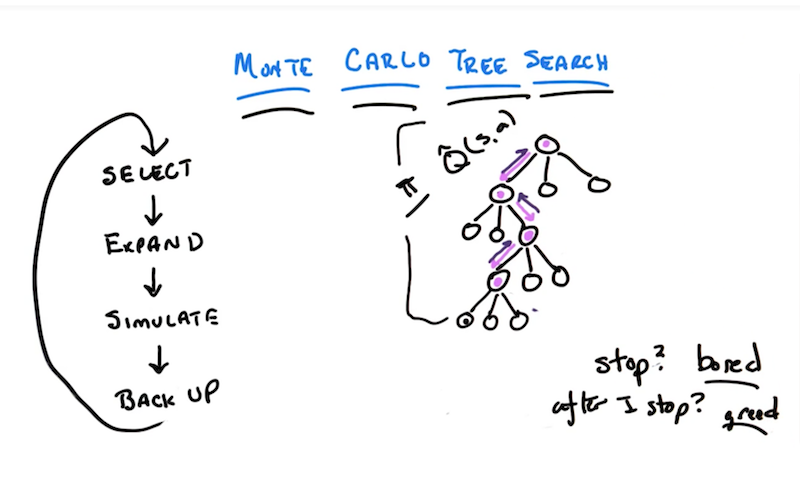 MONTE CARLO TREE SEARCH
SELECT
EXPAND
SIMULATE
BACK UP
π
Q̂(s,a)
stop? bored
after I stop? greed